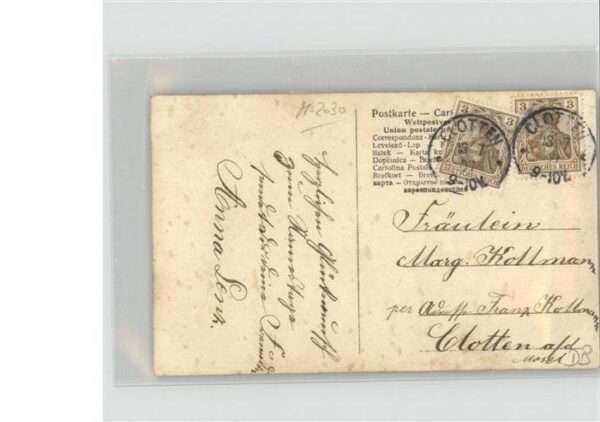 M-2030
Postkarte — Car
Weltpostver
Union postale
Correspondenz
Levelező-Lap
Listek — Karta
Dopisnica
Cartolina Postal
Brefkort — Brev
карта — Открытое
3
3
CLOTTEN
15.1
9-10V.
CLOTTEN
15
9-10V.
REICH
Herzlichen Glückwunsch
zum Namenstage
Anna Lenz.
Fräulein
Marg. Kollmann
per Adresse Franz Kollmann
Clotten a/d
Mosel
DB